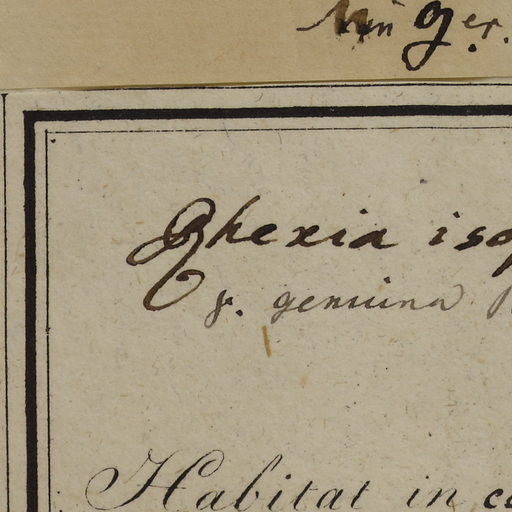 ger.
Rhexia iso
γ. genuina
Habitat in c